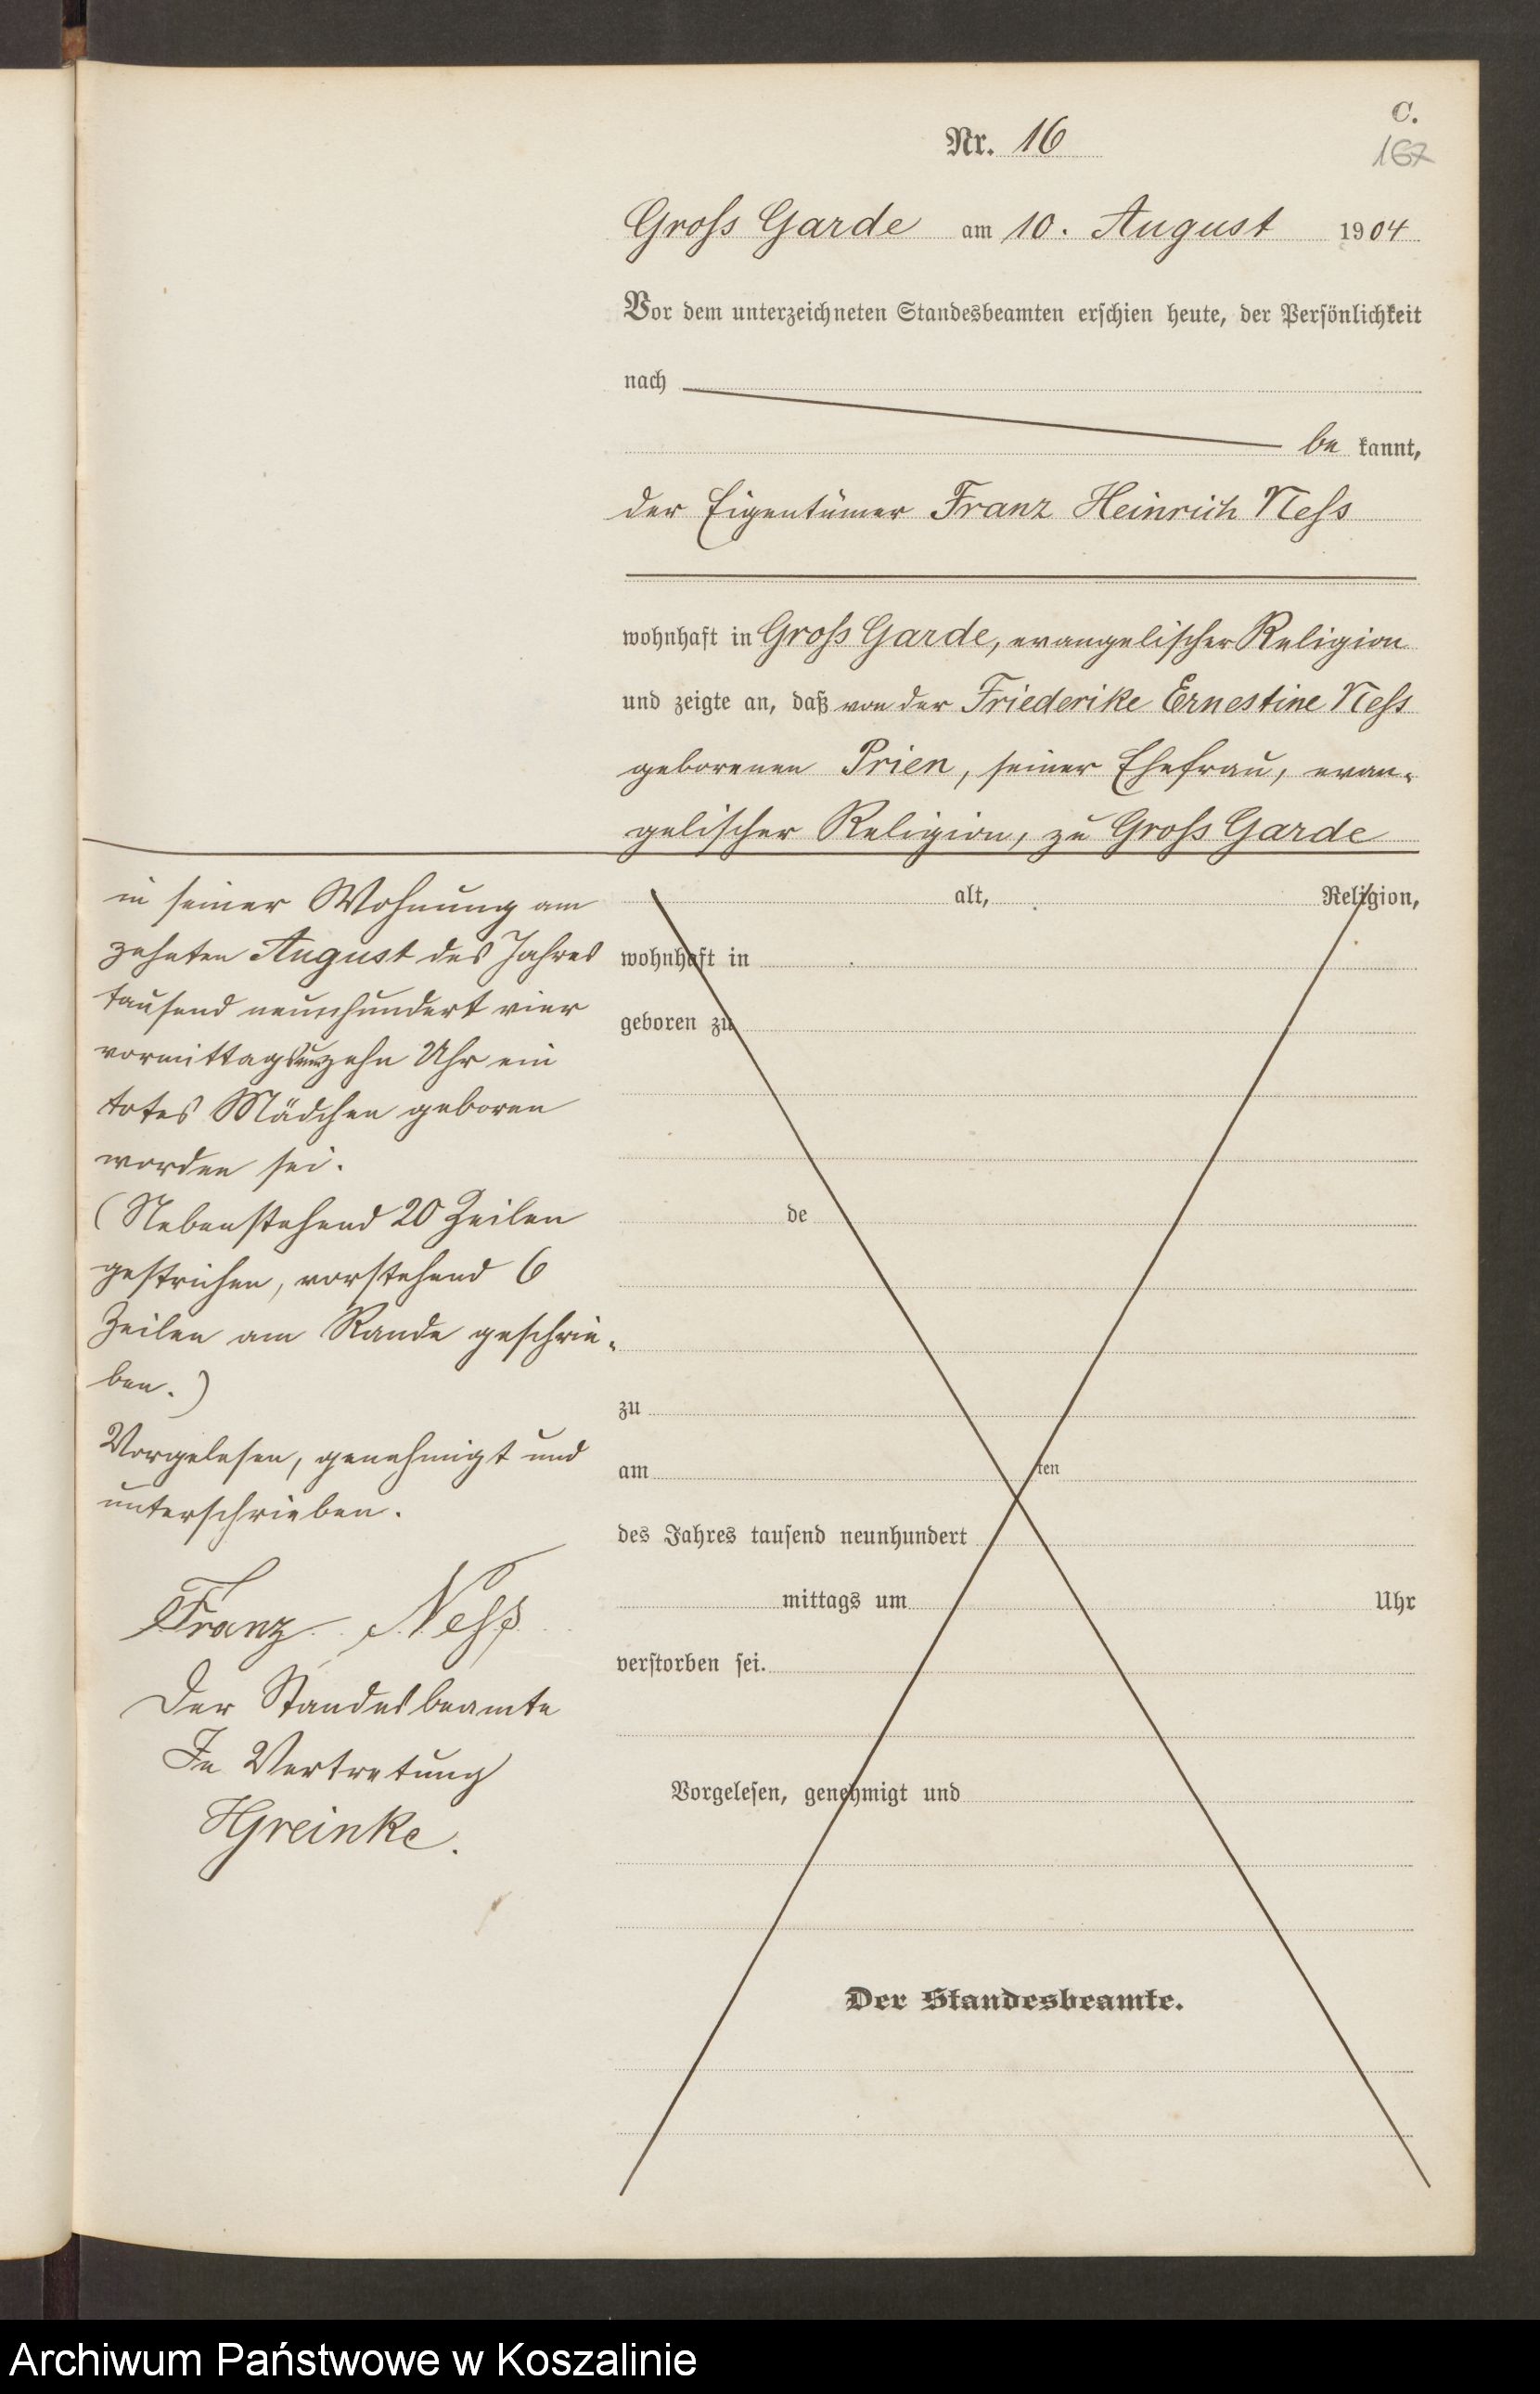 C.
Nr. 16
167
Gross Garde am 10. August 1904
Vor dem unterzeichneten Standesbeamten erschien heute, der Persönlichkeit
nach
be kannt,
der Eigentümer Franz Heinrich Ness
wohnhaft in Gross Garde, evangelischer Religion
und zeigte an, daß von der Friederike Ernestine Ness
geborenen Prien, seiner Ehefrau, evan-
gelischer Religion, zu Gross Garde
in seiner Wohnung am
zehnten August des Jahres
tausend neunhundert vier
vormittags um zehn Uhr ein
totes Mädchen geboren
worden sei.
(Nebenstehend 20 Zeilen
gestrichen, vorstehend 6
Zeilen am Rande geschrie-
ben.)
Vorgelesen, genehmigt und
unterschrieben.
Franz Neß
Der Standesbeamte
In Vertretung
HGreinke.
alt, Religion,
wohnhaft in
geboren zu
de
zu
am ten
des Jahres tausend neunhundert
mittags um Uhr
verstorben sei.
Vorgelesen, genehmigt und
Der Standesbeamte.
Archiwum Państwowe w Koszalinie